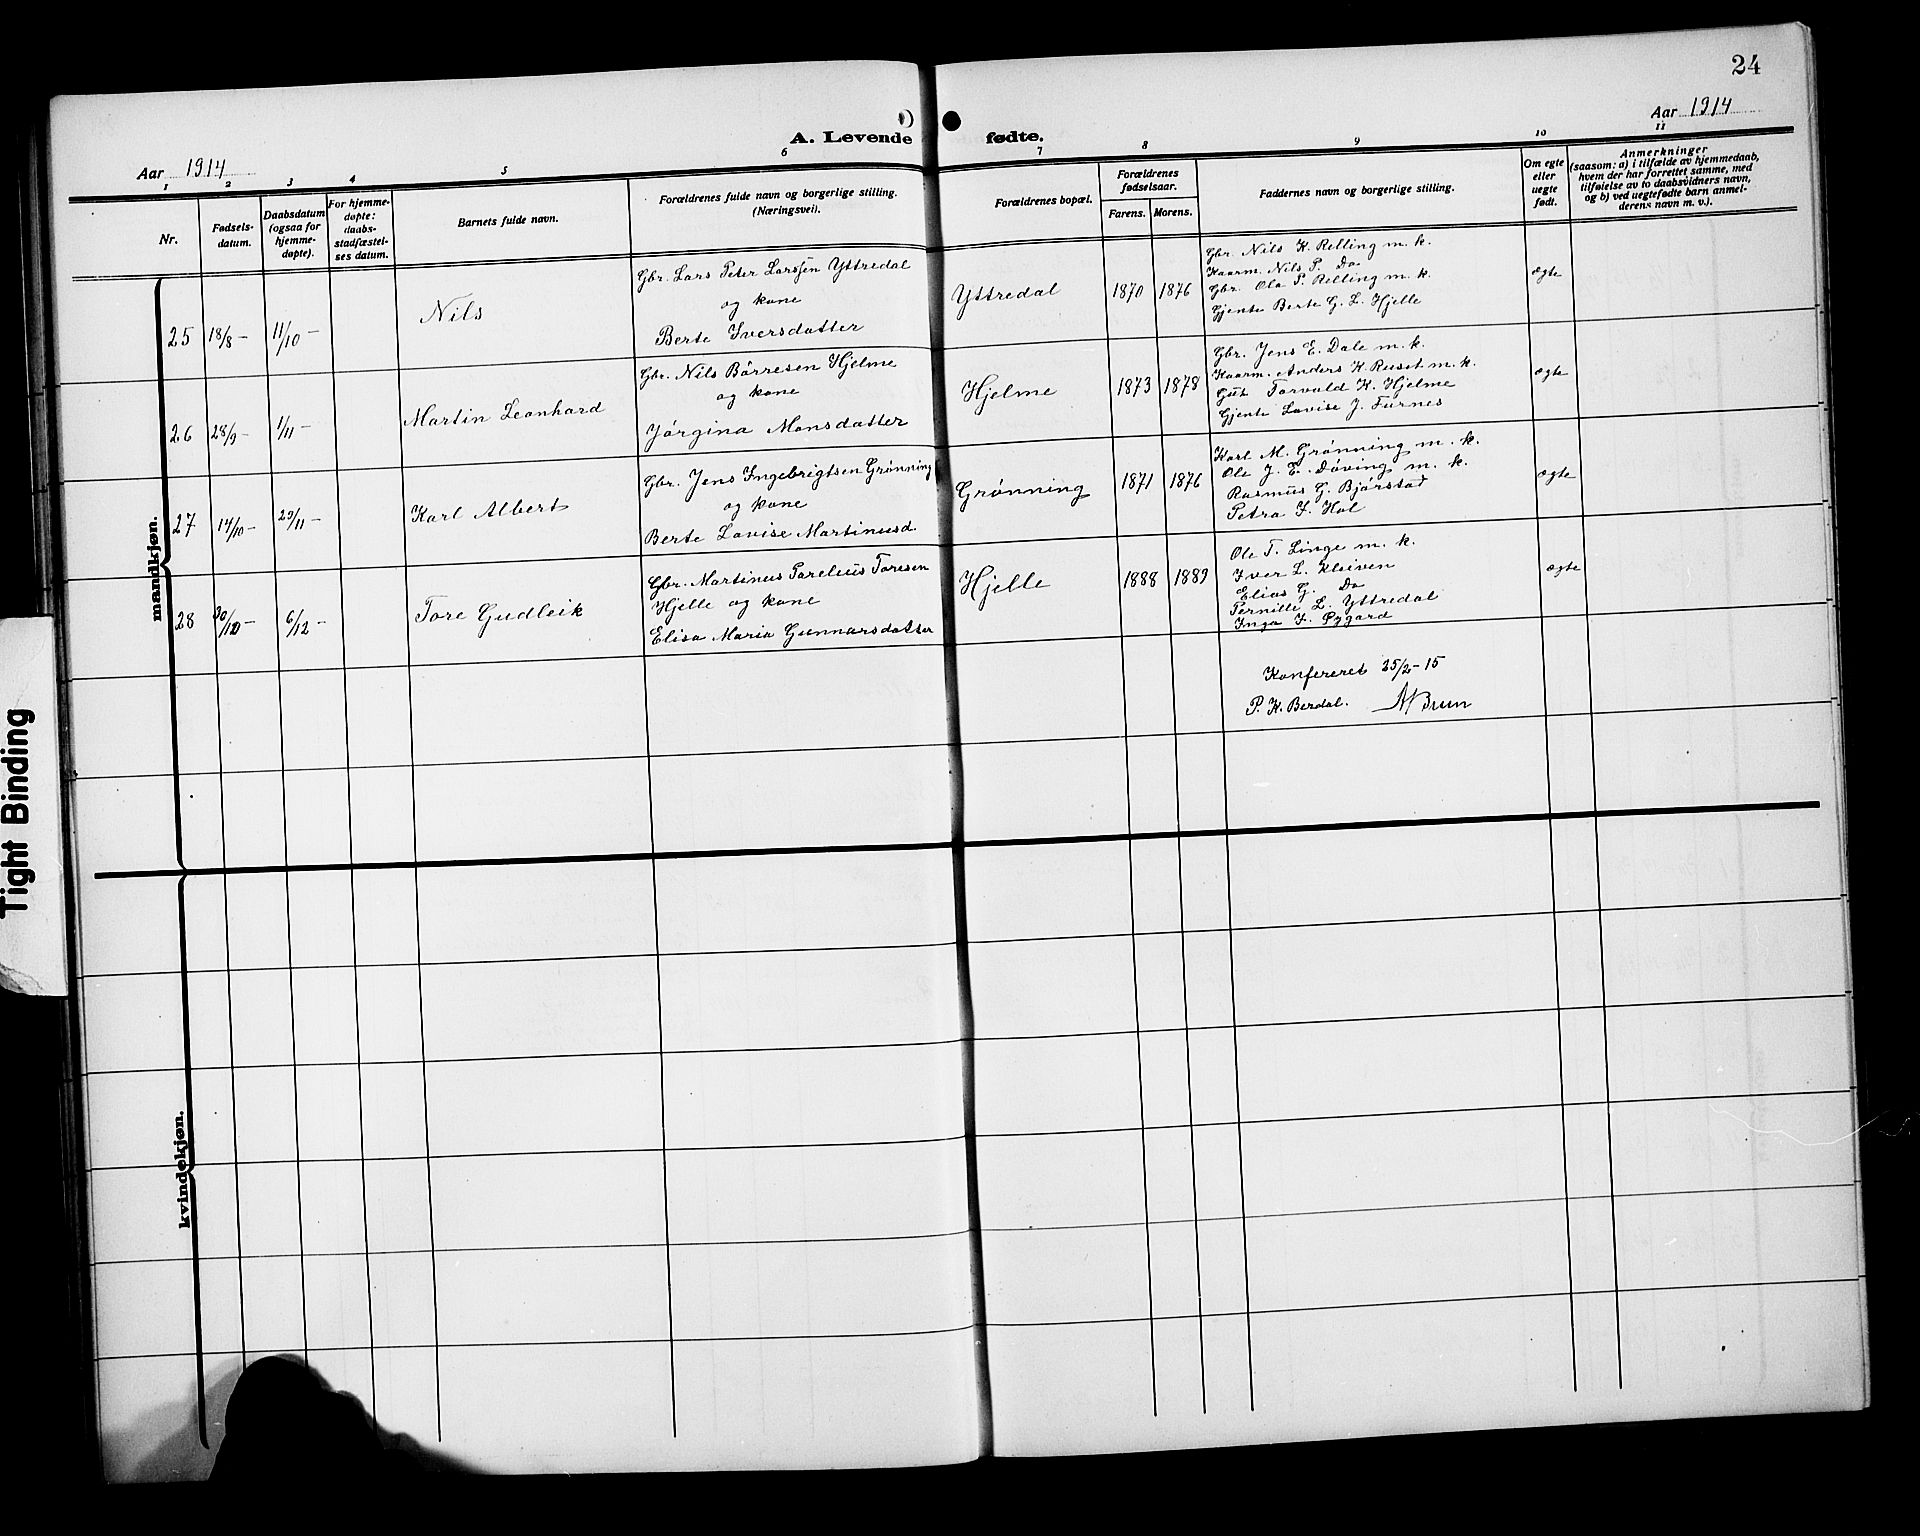 24
Aar 1914
A. Levende fødte.
Aar 1914
1 2 3 4 5 6 7 8 9 10 11
Nr.
Fødsels-
datum.
Daabsdatum
(ogsaa for
hjemme-
døpte).
For hjemme-
døpte:
daabs-
stadfæstel-
ses datum.
Barnets fulde navn.
Forældrenes fulde navn og borgerlige stilling.
(Næringsvei).
Forældrenes bopæl.
Forældrenes
fødselsaar.
Farens. Morens.
Faddernes navn og borgerlige stilling.
Om egte
eller
uegte
født.
Anmerkninger
(saasom: a) i tilfælde av hjemmedaab,
hvem der har forrettet samme, med
tilføielse av to daabsvidners navn,
og b) ved uegtefødte barn anmel-
derens navn m. v.).
mandkjøn.
25 18/8 - 11/10 -
Nils
Gbr. Lars Peter Larssen Yttredal
og kone
Berte Iversdatter
Yttredal
1870 1876
Gbr. Nils K. Relling m. k.
Kaarm. Nils P. Do
Gbr. Ola P. Relling m. k.
Gjente Berte G. L. Hjelle
ægte
26 28/9 - 1/11 -
Martin Leonhard
Gbr. Nils Børresen Hjelme
og kone
Jørgina Monsdatter
Hjelme
1873 1878
Gbr. Jens E. Dale m. k.
Kaarm. Anders K. Ruset m. k.
Gut Torvald K. Hjelme
Gjente Lovise J. Furnes
ægte
27 14/10 - 29/11 -
Karl Albert
Gbr. Jens Ingebrigtsen Grønning
og kone
Berte Lovise Martinusd.
Grønning
1871 1876
Karl M. Grønning m. k.
Ole J. E. Døving m. k.
Rasmus G. Bjørstad
Petra I. Hol
ægte
28 30/10 - 6/12 -
Tore Gudleik
Gbr. Martinus Parelius Toresen
Hjelle og kone
Elisa Maria Gunnarsdatter
Hjelle
1888 1889
Ole T. Linge m. k.
Iver L. Kleiven
Elias G. Do
Pernille L. Yttredal
Inga I. Øygard
ægte
Konfereret 25/2-15
P. K. Berdal. Brun
kvindekjøn.
Tight Binding